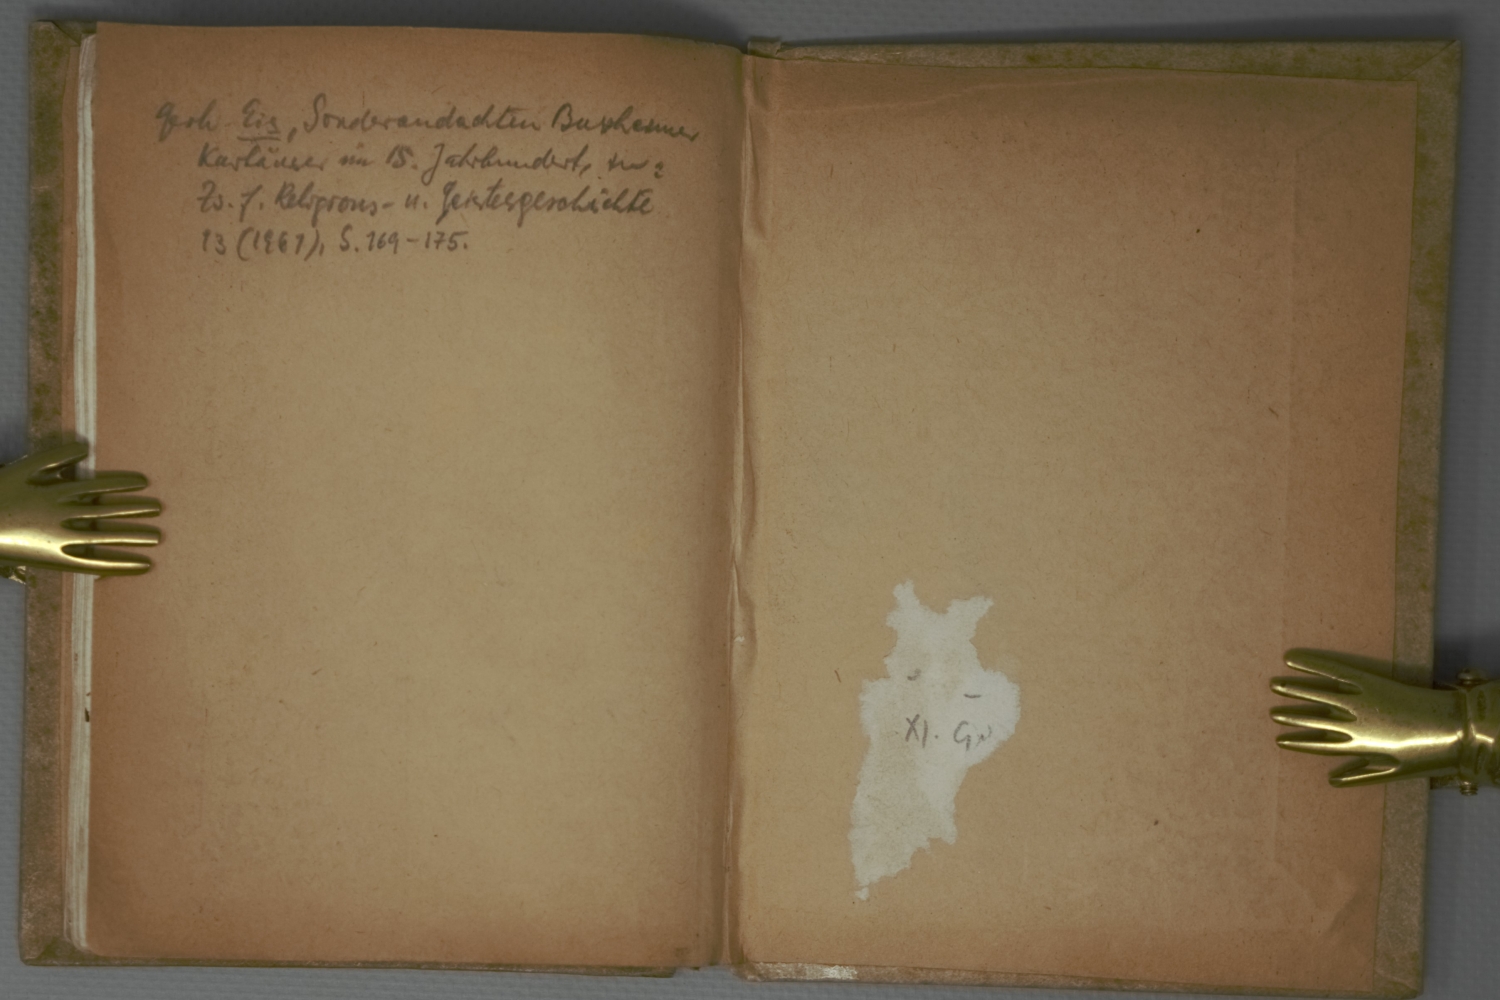 Gerh. Eis, Sonderandachten Buxheimer
Kartäuser im 15. Jahrhundert, in:
Zs. f. Religions- u. Geistesgeschichte
13 (1961), S. 169-175.
XI.